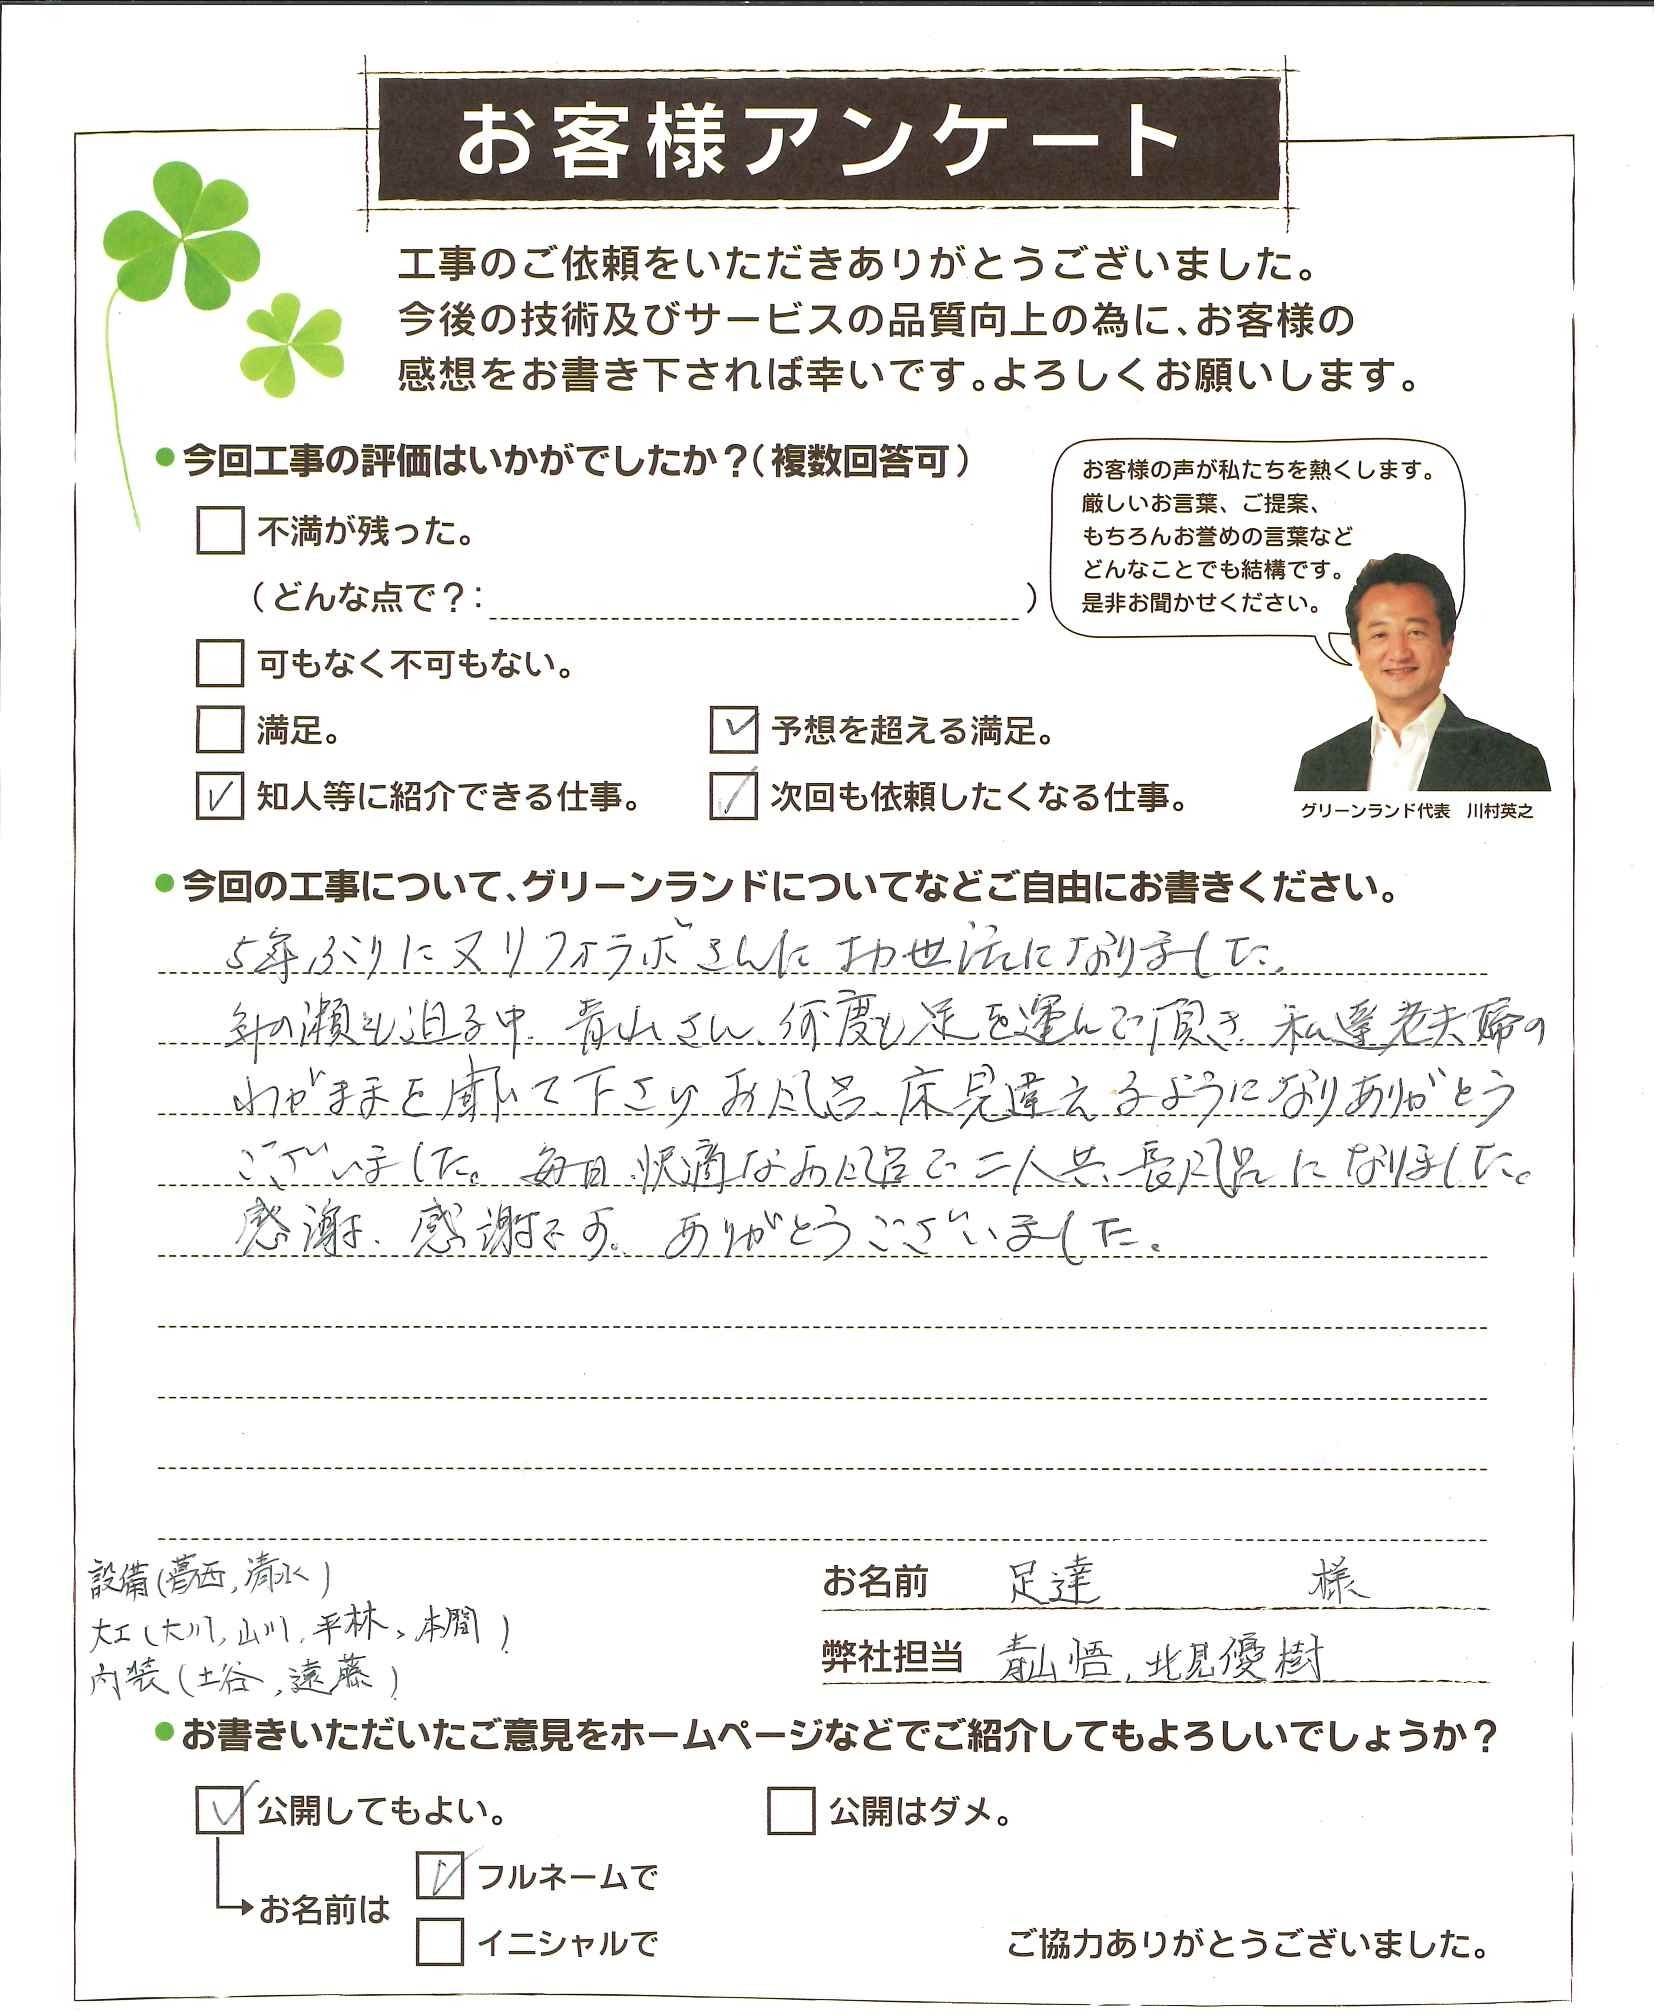 お客様アンケート
工事のご依頼をいただきありがとうございました。
今後の技術及びサービスの品質向上の為に、お客様の
感想をお書き下されば幸いです。よろしくお願いします。
●今回工事の評価はいかがでしたか？（複数回答可）
不満が残った。
（どんな点で？：　）
可もなく不可もない。
満足。
予想を超える満足。
知人等に紹介できる仕事。
次回も依頼したくなる仕事。
お客様の声が私たちを熱くします。
厳しいお言葉、ご提案、
もちろんお誉めの言葉など
どんなことでも結構です。
是非お聞かせください。
グリーンランド代表　川村英之
●今回の工事について、グリーンランドについてなどご自由にお書きください。
5年ぶりに又リフォラボさんにお世話になりました。
年の瀬も迫る中、青山さん、何度も足を運んで頂き、私達老夫婦の
わがままを聞いて下さり お風呂、床見違えるようになりありがとう
ございました。毎日 快適なお風呂で二人共、長風呂になりました。
感謝、感謝です。ありがとうございました。
設備（葛西，清水）
大工（大川，山川，平林、本間）
内装（土谷，遠藤）
お名前　足達　様
弊社担当　青山 悟、北見優樹
●お書きいただいたご意見をホームページなどでご紹介してもよろしいでしょうか？
公開してもよい。
公開はダメ。
お名前は
フルネームで
イニシャルで
ご協力ありがとうございました。